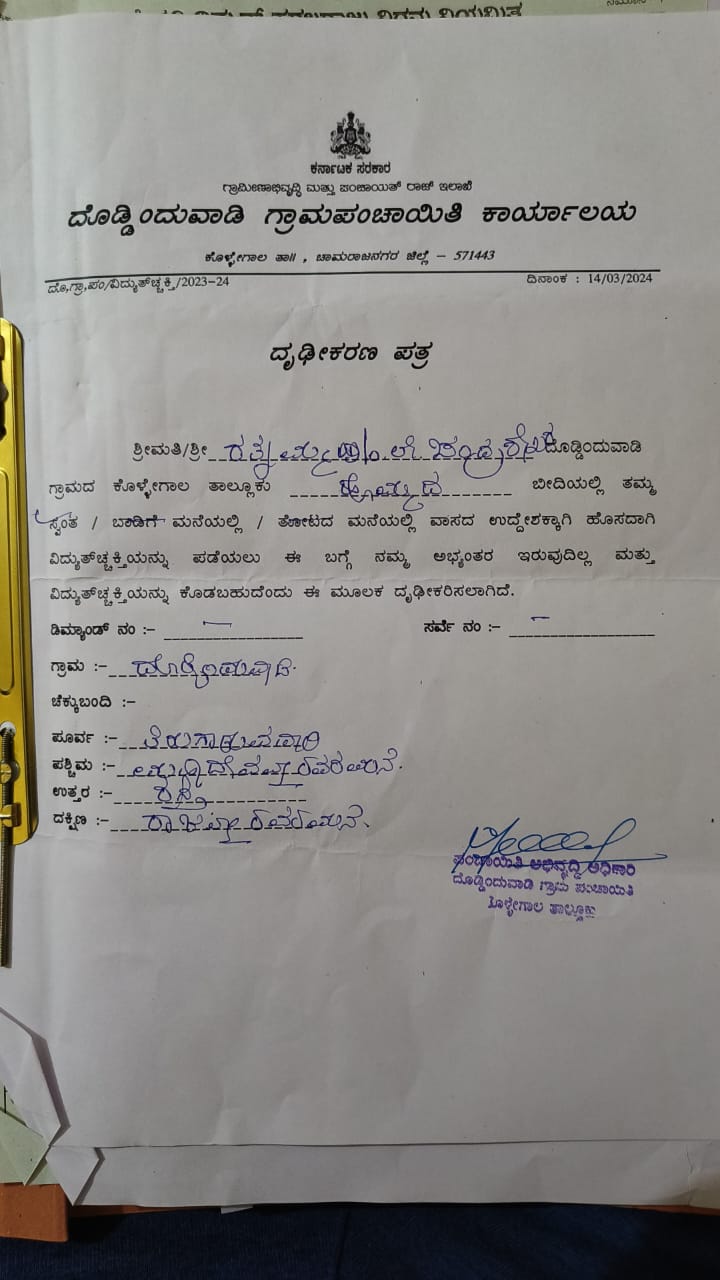 ಕರ್ನಾಟಕ ಸರಕಾರ
ಗ್ರಾಮೀಣಾಭಿವೃದ್ಧಿ ಮತ್ತು ಪಂಚಾಯತ್ ರಾಜ್ ಇಲಾಖೆ
ದೊಡ್ಡಿಂದುವಾಡಿ ಗ್ರಾಮಪಂಚಾಯಿತಿ ಕಾರ್ಯಾಲಯ
ಕೊಳ್ಳೇಗಾಲ ತಾ॥ , ಚಾಮರಾಜನಗರ ಜಿಲ್ಲೆ – 571443
ದೊ,ಗ್ರಾ,ಪಂ/ವಿದ್ಯುತ್‌ಚ್ಚಕ್ತಿ/2023-24 ದಿನಾಂಕ : 14/03/2024
ದೃಢೀಕರಣ ಪತ್ರ
ಶ್ರೀಮತಿ/ಶ್ರೀ ದೊಡ್ಡಿಂದುವಾಡಿ
ಗ್ರಾಮದ ಕೊಳ್ಳೇಗಾಲ ತಾಲ್ಲೂಕು ಬೀದಿಯಲ್ಲಿ ತಮ್ಮ
ಸ್ವಂತ / ಬಾಡಿಗೆ ಮನೆಯಲ್ಲಿ / ತೋಟದ ಮನೆಯಲ್ಲಿ ವಾಸದ ಉದ್ದೇಶಕ್ಕಾಗಿ ಹೊಸದಾಗಿ
ವಿದ್ಯುತ್‌ಚ್ಚಕ್ತಿಯನ್ನು ಪಡೆಯಲು ಈ ಬಗ್ಗೆ ನಮ್ಮ ಅಭ್ಯಂತರ ಇರುವುದಿಲ್ಲ ಮತ್ತು
ವಿದ್ಯುತ್‌ಚ್ಚಕ್ತಿಯನ್ನು ಕೊಡಬಹುದೆಂದು ಈ ಮೂಲಕ ದೃಢೀಕರಿಸಲಾಗಿದೆ.
ಡಿಮ್ಯಾಂಡ್ ನಂ :– — ಸರ್ವೆ ನಂ :– —
ಗ್ರಾಮ :–
ಚೆಕ್ಕುಬಂದಿ :–
ಪೂರ್ವ :–
ಪಶ್ಚಿಮ :–
ಉತ್ತರ :– ರಸ್ತೆ
ದಕ್ಷಿಣ :–
ಪಂಚಾಯಿತಿ ಅಭಿವೃದ್ಧಿ ಅಧಿಕಾರಿ
ದೊಡ್ಡಿಂದುವಾಡಿ ಗ್ರಾಮ ಪಂಚಾಯಿತಿ
ಕೊಳ್ಳೇಗಾಲ ತಾಲ್ಲೂಕು